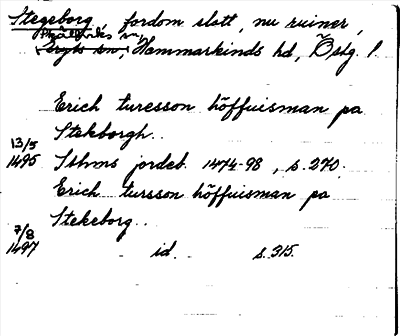 Stegeborg, fordom slott, nu ruiner,
Skällviks sn,
Hammarkinds hd, Östg. l.
Erich turesson höffuisman pa
Stekborgh..
13/5
1495 Sthms jordeb. 1474-98, s. 270.
Erich tursson höffuisman pa
Stekeborg..
7/8
1497 id. s. 315.